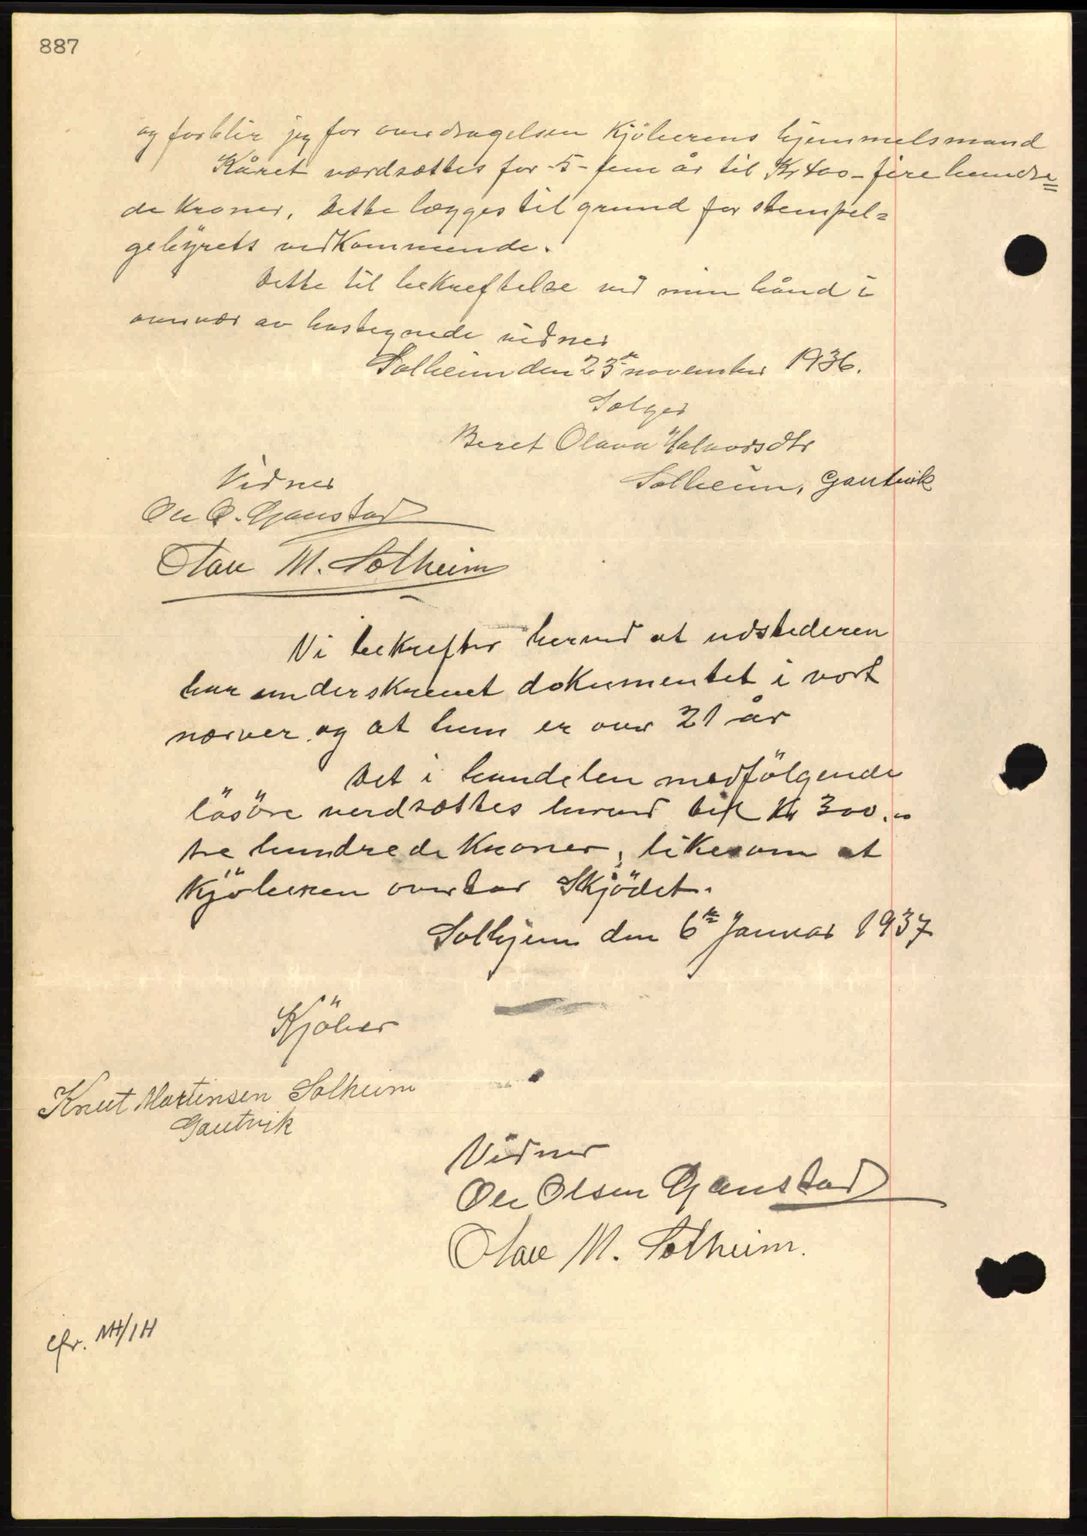 887
og forblir jeg for overdragelsen Kjöberens hjemmelsmand
Kåret værdsættes for -5- fem år til Kr 400 - fire hundre=
de Kroner. Dette lægges til grund for stempel=
gebyrets vedkommende.
Dette til bekreftelse ved min hånd i
overvær av hostegnede vidner
Solheim den 23de november 1936.
Sælger
Beret Olava Halvorsdtr
Solheim, Gautvik
Vidner
Ole O. Gaustad
Olav M. Solheim
Vi bekrefter herved at udstederen
har underskrevet dokumentet i vort
nærver og at hun er over 21 år
Det i handelen medfölgende
lösöre verdsættes herved til Kr 300.
tre hundrede Kroner, likesom at
Kjöberen overtar Skjödet.
Solhjem den 6te Januar 1937
Kjöber
Knut Martinsen Solheim
Gautvik
Vidner
Ole Olsen Gaustad
Olav M. Solheim.
cfr. MH/IH